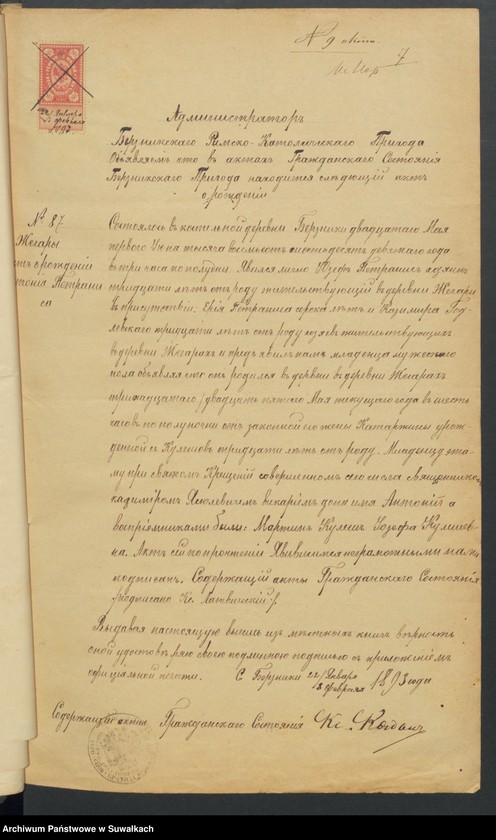 № 9 
7
22/Января
3 Февраля
1893
Администраторъ
Бержникскаго Римско-Католическаго Прихода
Объявляетъ что въ актахъ Гражданскаго Состоянія
Бержникскаго Прихода находится слѣдующій актъ
о рожденіи
№ 87.
Жегары
актъ о рожденіи
Антонія Петрани
са
Состоялось въ костельной деревни Бержники двадцатаго Мая
перваго Іюня тысяча восемьсотъ шестьдесятъ девятаго года
въ три часа по полудни. Явился лично Іозефъ Петранисъ хозяинъ
тридцати лѣтъ отъ роду жительствующій въ деревни Жегары
въ присутствіи: Петраниса сорока лѣтъ и Казимира Год
левскаго тридцати лѣтъ отъ роду хозяевъ жительствующихъ
въ деревни Жегарахъ и предъявилъ намъ младенца мужескаго
пола объявляя что онъ родился въ деревни въ деревни Жегарахъ
тринадцатаго /двадцать пятаго Мая текущаго года въ шесть
часовъ по полуночи отъ законной его жены Катаржины урож
денной съ Кулешовъ тридцати лѣтъ отъ роду. Младенцу это
му при святомъ Крещеніи совершенномъ сего числа Священникомъ
Казиміромъ викаріемъ дано имя Антоній а
воспріемниками были: Мартинъ Кулешъ Іозефа Кулешев
на. Актъ сій по прочтеніи Явившимся неграмотнымъ нами
подписанъ. Содержащій акты Гражданскаго Состоянія
/подписано Кс. /.
Выдавая настоящую выпись изъ мѣстныхъ книгъ вѣрность
оной удостовѣряю своею подлинною подписью съ приложеніемъ
официальной печати. С Бержники 22/Января
3 Февраля 1893 года
Содержащій акты Гражданскаго Состоянія Кс.
Archiwum Państwowe w Suwałkach